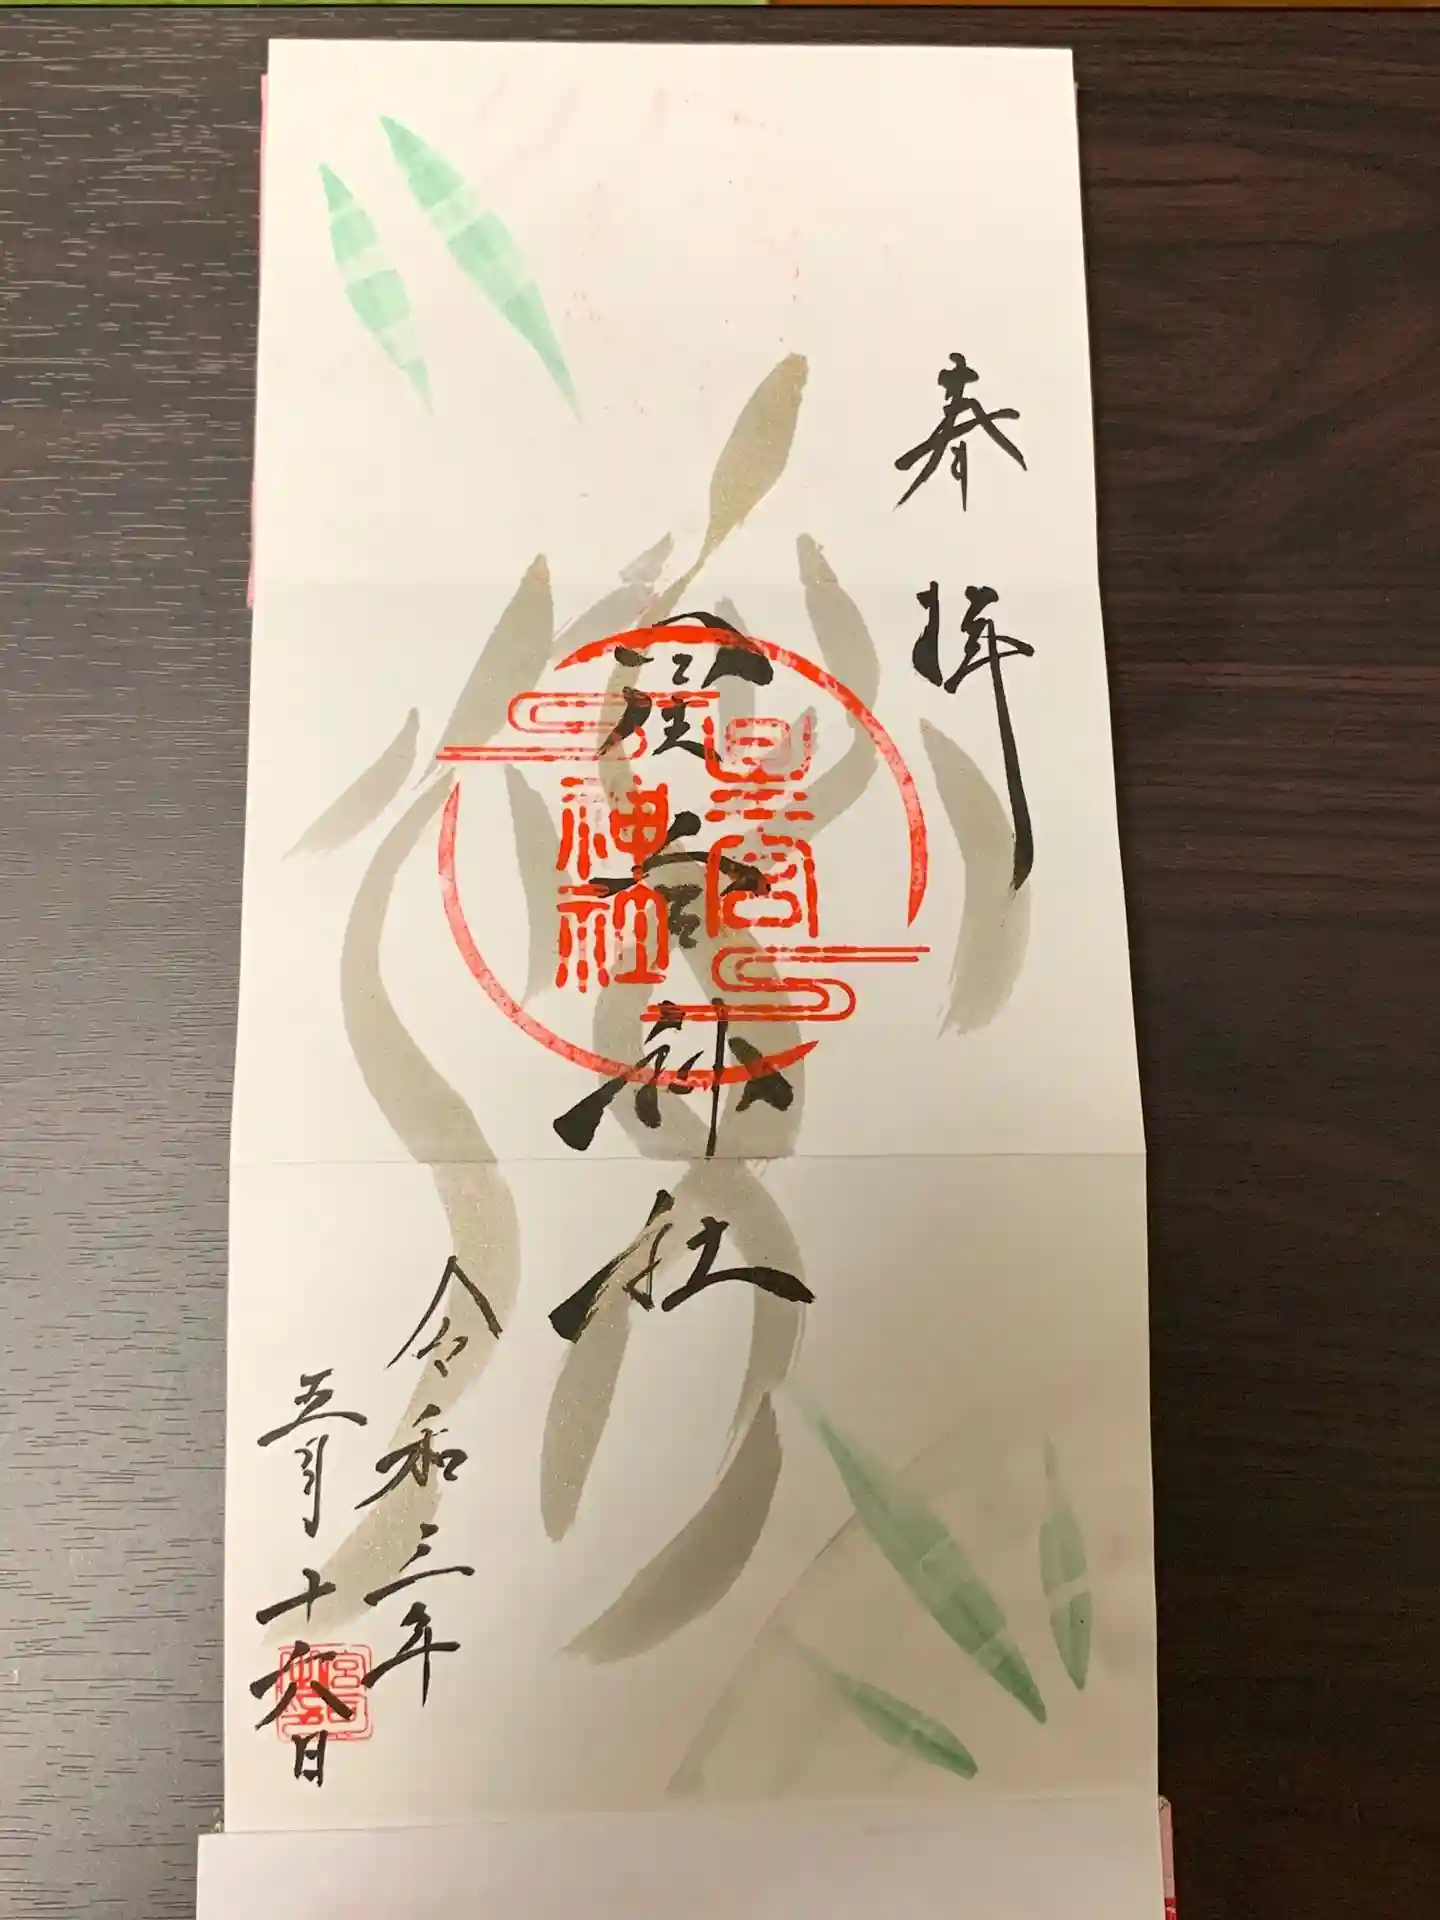 奉拝
星宮神社
星宮
神社
令和三年
五月十六日